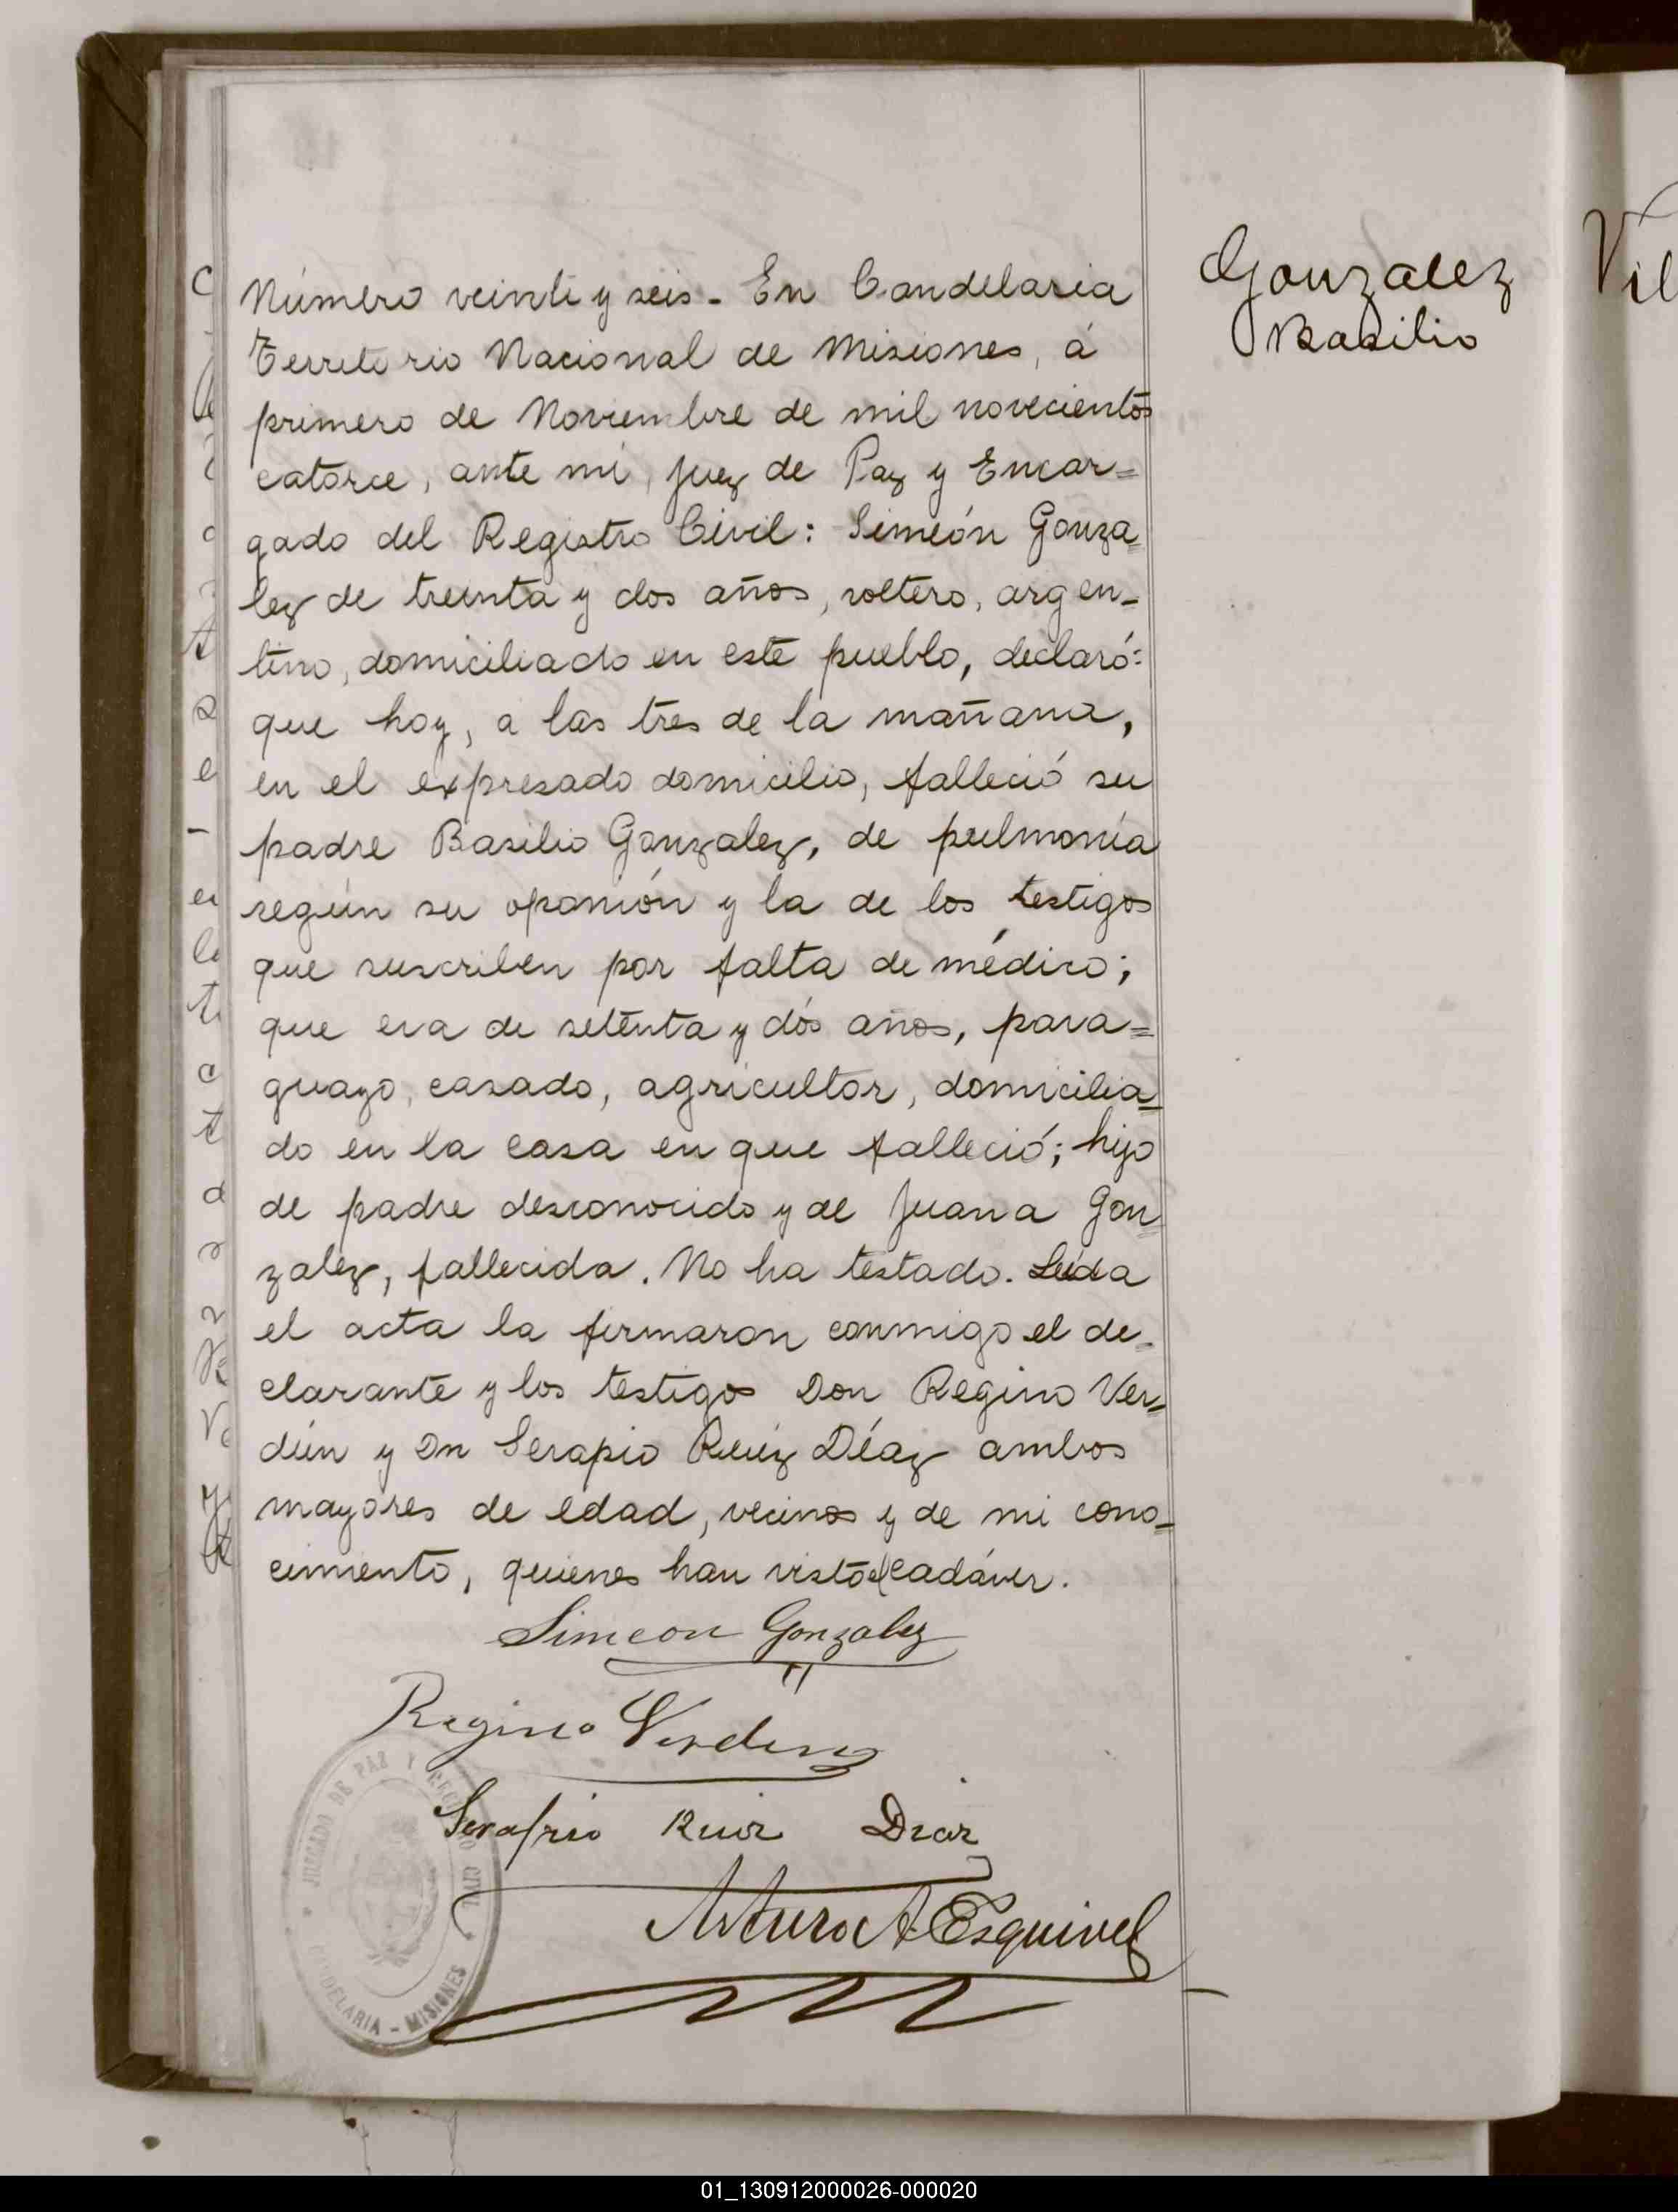 Número veinte y seis - En Candelaria
Territorio Nacional de Misiones, á
primero de Noviembre de mil novecientos
catorce, ante mi, Juez de Paz y Encar=
gado del Registro Civil: Simeón Gonza=
lez de treinta y dos años, soltero, argen-
tino, domiciliado en este pueblo, declaró:
que hoy, a las tres de la mañana,
en el expresado domicilio, falleció su
padre Basilio Gonzalez, de pulmonía
según su opinión y la de los testigos
que suscriben por falta de médico;
que era de setenta y dós años, para=
guayo, casado, agricultor, domicilia=
do en la casa en que falleció; hijo
de padre desconocido y de Juana Gon=
zalez, fallecida. No ha testado. Leída
el acta la firmaron conmigo el de=
clarante y los testigos Don Regino Ver=
dún y Dn Serapio Ruíz Díaz ambos
mayores de edad, vecinos y de mi cono=
cimiento, quienes han visto el cadáver.
Simeon Gonzalez
Regino Verdun
Serapio Ruiz Diaz
Arturo A. Esquivel
JUZGADO DE PAZ Y REGISTRO CIVIL
CANDELARIA - MISIONES
Gonzalez
Basilio
Vil
01_130912000026-000020